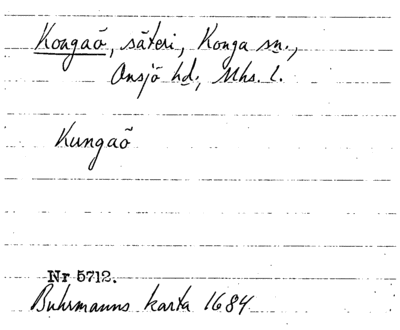 Kongaö, säteri, Konga sn.,
Onsjö hd., Mhs. l.
Kungaö
Nr 5712.
Buhrmanns karta 1684